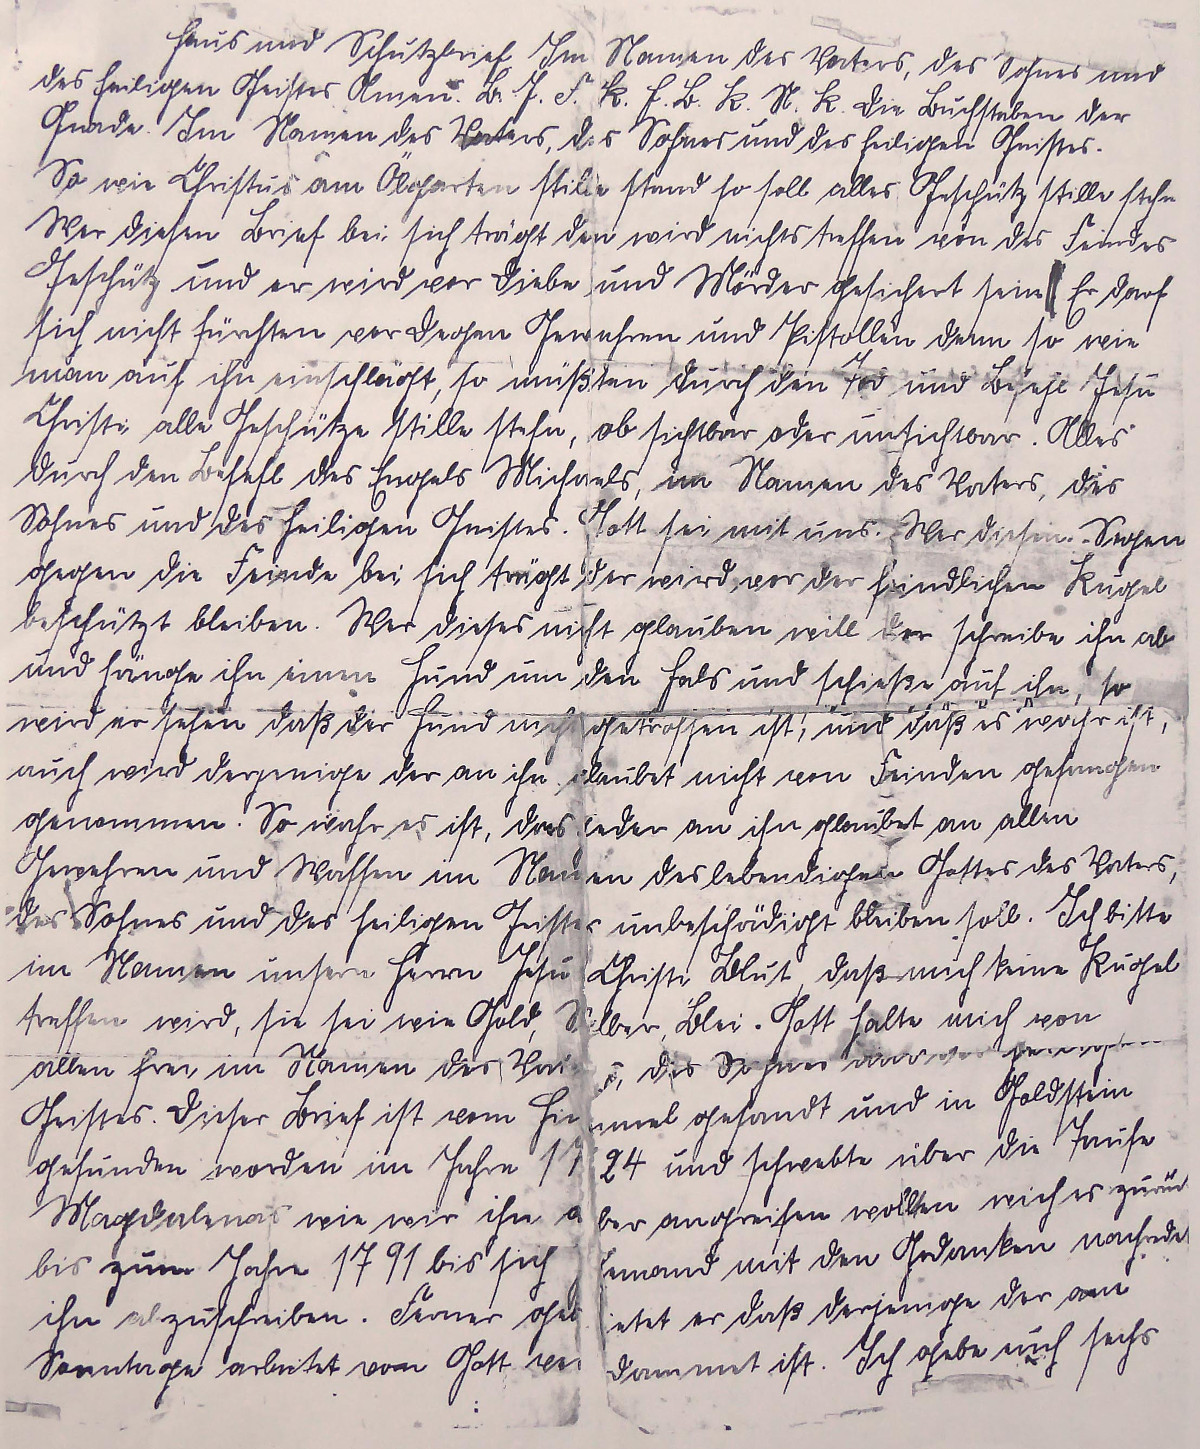 Haus und Schutzbrief Im Namen des Vaters, des Sohnes und
des heiligen Geistes Amen. B. J. F. K. H. B. K. N. K. Die Buchstaben der
Gnade. Im Namen des Vaters, des Sohnes und des heiligen Geistes.
So wie Christus am Ölgarten stille stand so soll alles Geschütz stille stehn
Wer diesen Brief bei sich trägt den wird nichts treffen von des Feindes
Geschütz und er wird vor Diebe und Mörder gesichert sein Er darf
sich nicht fürchten vor Degen Gewehren und Pistollen denn so wie
man auf ihn einschlägt, so müßten durch den Tod und Befehl Jesu
Christi alle Geschütze stille stehn, ob sichtbar oder unsichtbar. Alles
durch den Befehl des Engels Michaels, im Namen des Vaters, des
Sohnes und des heiligen Geistes. Gott sei mit uns. Wer diesen Segen
gegen die Feinde bei sich trägt der wird vor der feindlichen Kugel
beschützt bleiben. Wer dieses nicht glauben will der schreibe ihn ab
und hänge ihn einen Hund um den Hals und schieße auf ihn, so
wird er sehen daß der Hund nicht getroffen ist, und daß es wahr ist,
auch wird derjenige der an ihn glaubet nicht von Feinden gefangen
genommen. So wahr es ist, das jeder an ihn glaubet an allen
Gewehren und Waffen im Namen des lebendigen Gottes des Vaters,
des Sohnes und des heiligen Geistes unbeschädigt bleiben soll. Ich bitte
im Namen unsern Herrn Jesu Christi Blut, daß mich keine Kugel
treffen wird, sie sei wie Gold, Silber, Blei. Gott halte mich von
allen frei, im Namen des Vaters, des Sohnes und des heiligen
Geistes. Dieser Brief ist vom Himmel gesandt und in Holdstein
gefunden worden im Jahre 1724 und schwebte über die Taufe
Magdalenas wie wir ihn aber angreifen wollten wich es zurück
bis zum Jahre 1791 bis sich jemand mit den Gedanken nachredet
ihn abzuschreiben. Ferner gebietet er daß derjenige der am
Sonntage arbeitet von Gott verdammet ist. Ich gebe euch sechs